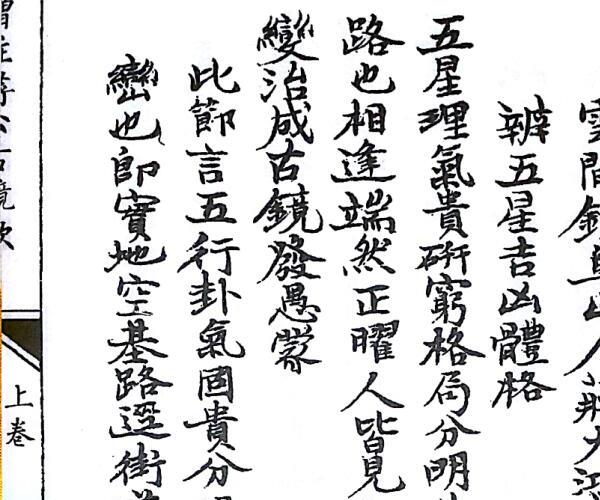 雲間山人蔣大
辨五星吉凶體格
五星理氣貴研窮格局分明
路也相逢端然正曜人皆見
變治成古鏡發愚蒙
此節言五行卦氣固貴分
巒也即實地空基路逕街
註蔣公古鏡歌
上卷